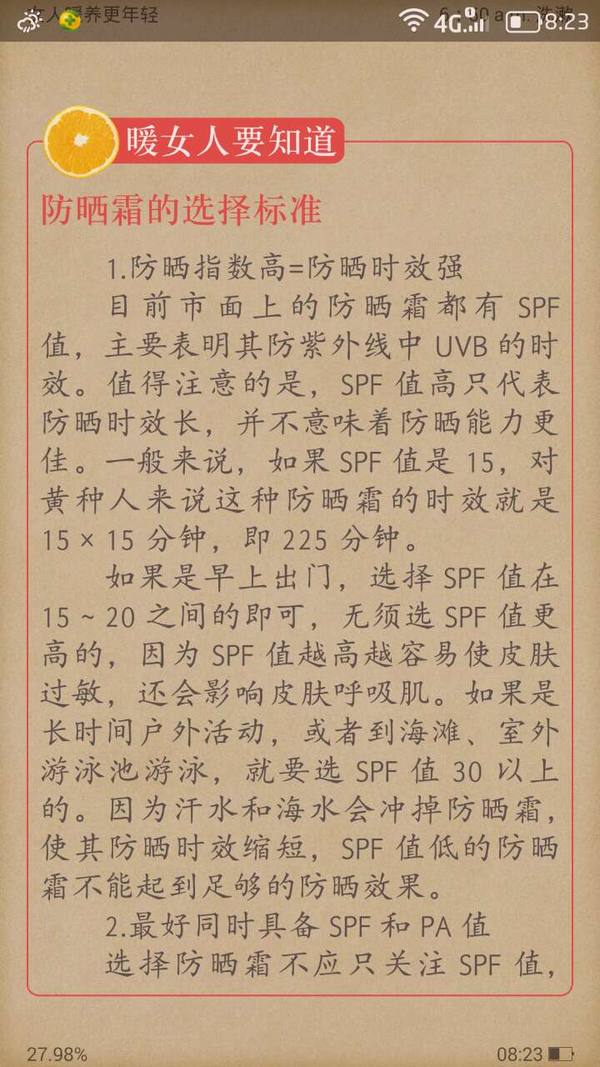 女人暖养更年轻
4G
8:23
暖女人要知道
防晒霜的选择标准
1.防晒指数高=防晒时效强
目前市面上的防晒霜都有 SPF
值，主要表明其防紫外线中 UVB 的时
效。值得注意的是，SPF 值高只代表
防晒时效长，并不意味着防晒能力更
佳。一般来说，如果 SPF 值是 15，对
黄种人来说这种防晒霜的时效就是
15 × 15 分钟，即 225 分钟。
如果是早上出门，选择 SPF 值在
15 ~ 20 之间的即可，无须选 SPF 值更
高的，因为 SPF 值越高越容易使皮肤
过敏，还会影响皮肤呼吸肌。如果是
长时间户外活动，或者到海滩、室外
游泳池游泳，就要选 SPF 值 30 以上
的。因为汗水和海水会冲掉防晒霜，
使其防晒时效缩短，SPF 值低的防晒
霜不能起到足够的防晒效果。
2.最好同时具备 SPF 和 PA 值
选择防晒霜不应只关注 SPF 值，
27.98%
08:23